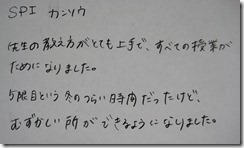 SPI カンソウ
先生の教え方がとても上手で、すべての授業が
ためになりました。
5限目という冬のつらい時間だったけど、
むずかしい所ができるようになりました。